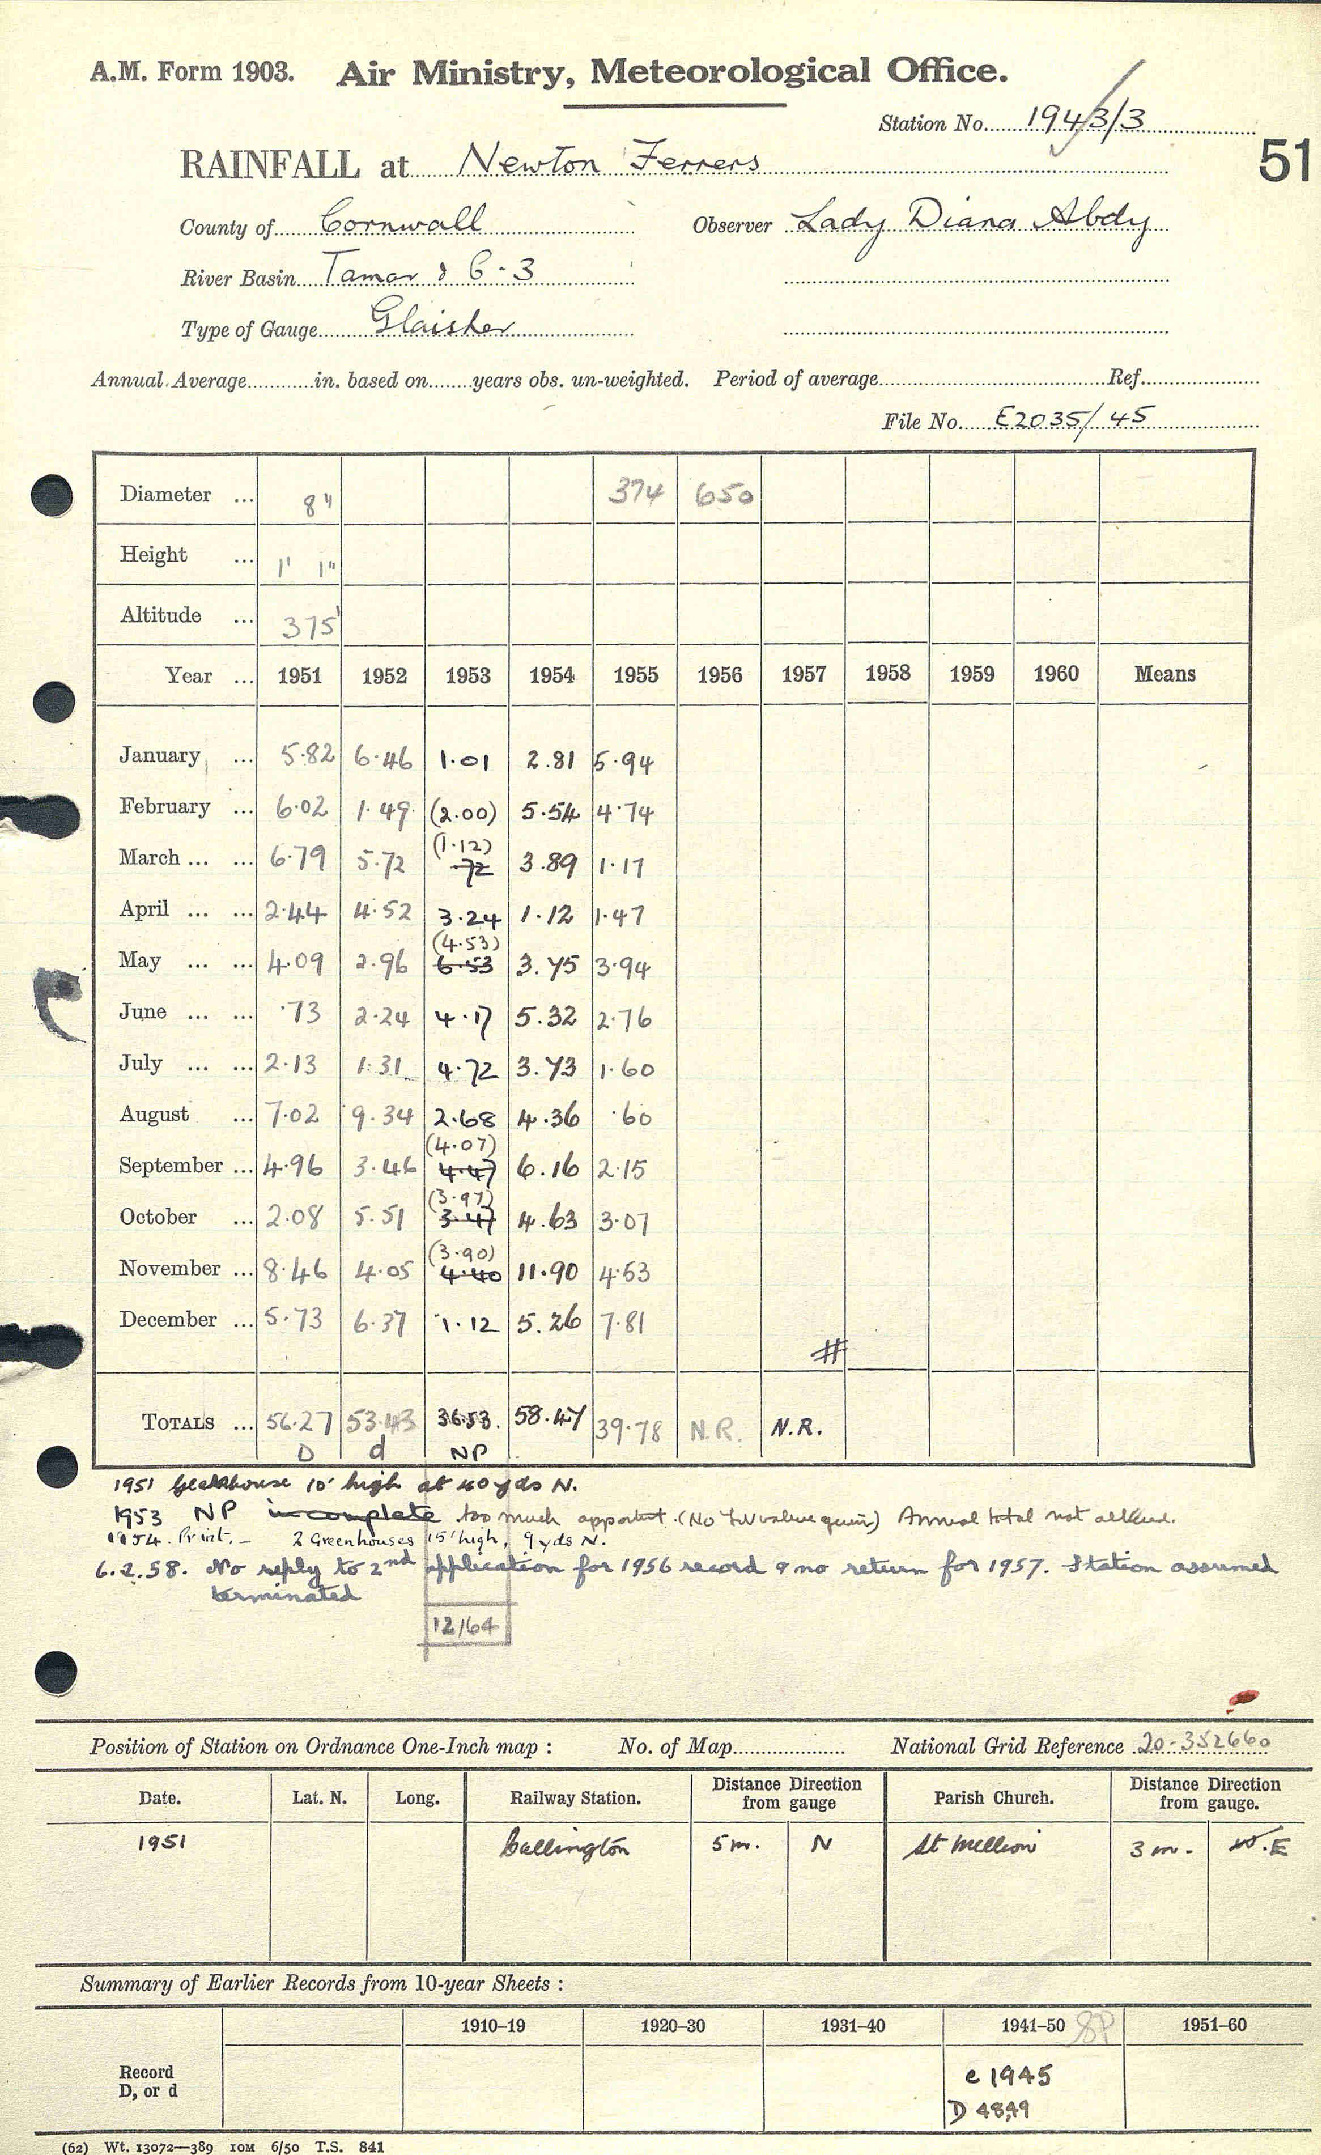 A.M. Form 1903. Air Ministry, Meteorological Office.
Station No. 1943/3
51
RAINFALL at Newton Ferrers
County of Cornwall Observer Lady Diana Abdy
River Basin Tamar & C-3
Type of Gauge Glaisher
Annual Average in. based on years obs. un-weighted. Period of average Ref.
File No. E2035/45
Diameter ... 8" 374 650
Height ... 1' 1"
Altitude ... 375'
Year ... 1951 1952 1953 1954 1955 1956 1957 1958 1959 1960 Means
January ... 5.82 6.46 1.01 2.81 5.94
February ... 6.02 1.49 (2.00) 5.54 4.74
March ... ... 6.79 5.72 (1.12) 72 3.89 1.17
April ... ... 2.44 4.52 3.24 1.12 1.47
May ... ... 4.09 2.96 (4.53) 6.53 3.75 3.94
June ... ... .73 2.24 4.17 5.32 2.76
July ... ... 2.13 1.31 4.72 3.73 1.60
August ... 7.02 9.34 2.68 4.36 .60
September ... 4.96 3.46 (4.07) 4.47 6.16 2.15
October ... 2.08 5.51 (3.97) 3.47 4.63 3.07
November ... 8.46 4.05 (3.90) 4.40 11.90 4.53
December ... 5.73 6.37 1.12 5.26 7.81
#
TOTALS ... 56.27 53.43 36.53. 58.47 39.78 N.R. N.R.
D d NP
1951 Glasshouse 10' high at 40 yds N.
1953 NP incomplete too much apport. (No value given) Annual total not allowed.
1954. Print. - 2 Greenhouses 15' high, 9 yds N.
6.2.58. No reply to 2nd application for 1956 record & no return for 1957. Station assumed
terminated
12/64
Position of Station on Ordnance One-Inch map : No. of Map National Grid Reference 20-352660
Date. Lat. N. Long. Railway Station. Distance from gauge Direction Parish Church. Distance from gauge. Direction
1951 Callington 5 m. N St Mellion 3 m. W.E
Summary of Earlier Records from 10-year Sheets :
1910–19 1920–30 1931–40 1941–50 1951–60
Record
D, or d
c 1945
D 48,49
(62) Wt. 13072—389 IOM 6/50 T.S. 841